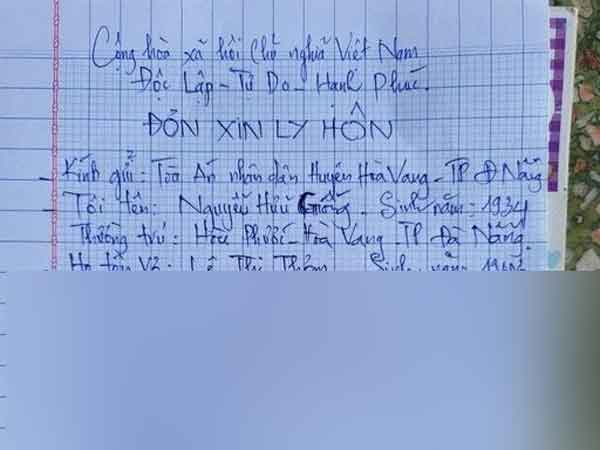 Cộng hòa xã hội Chủ nghĩa Việt Nam
Độc Lập - Tự Do - Hạnh Phúc.
ĐƠN XIN LY HÔN
- Kính gửi: Tòa Án nhân dân Huyện Hòa Vang - TP Đ Nẵng
- Tôi tên: Nguyễn Hữu Sinh năm: 1934
Thường trú: Hòa Phước - Hòa Vang - TP Đà Nẵng.
Họ tên Vợ: Lê Thị Sinh năm: